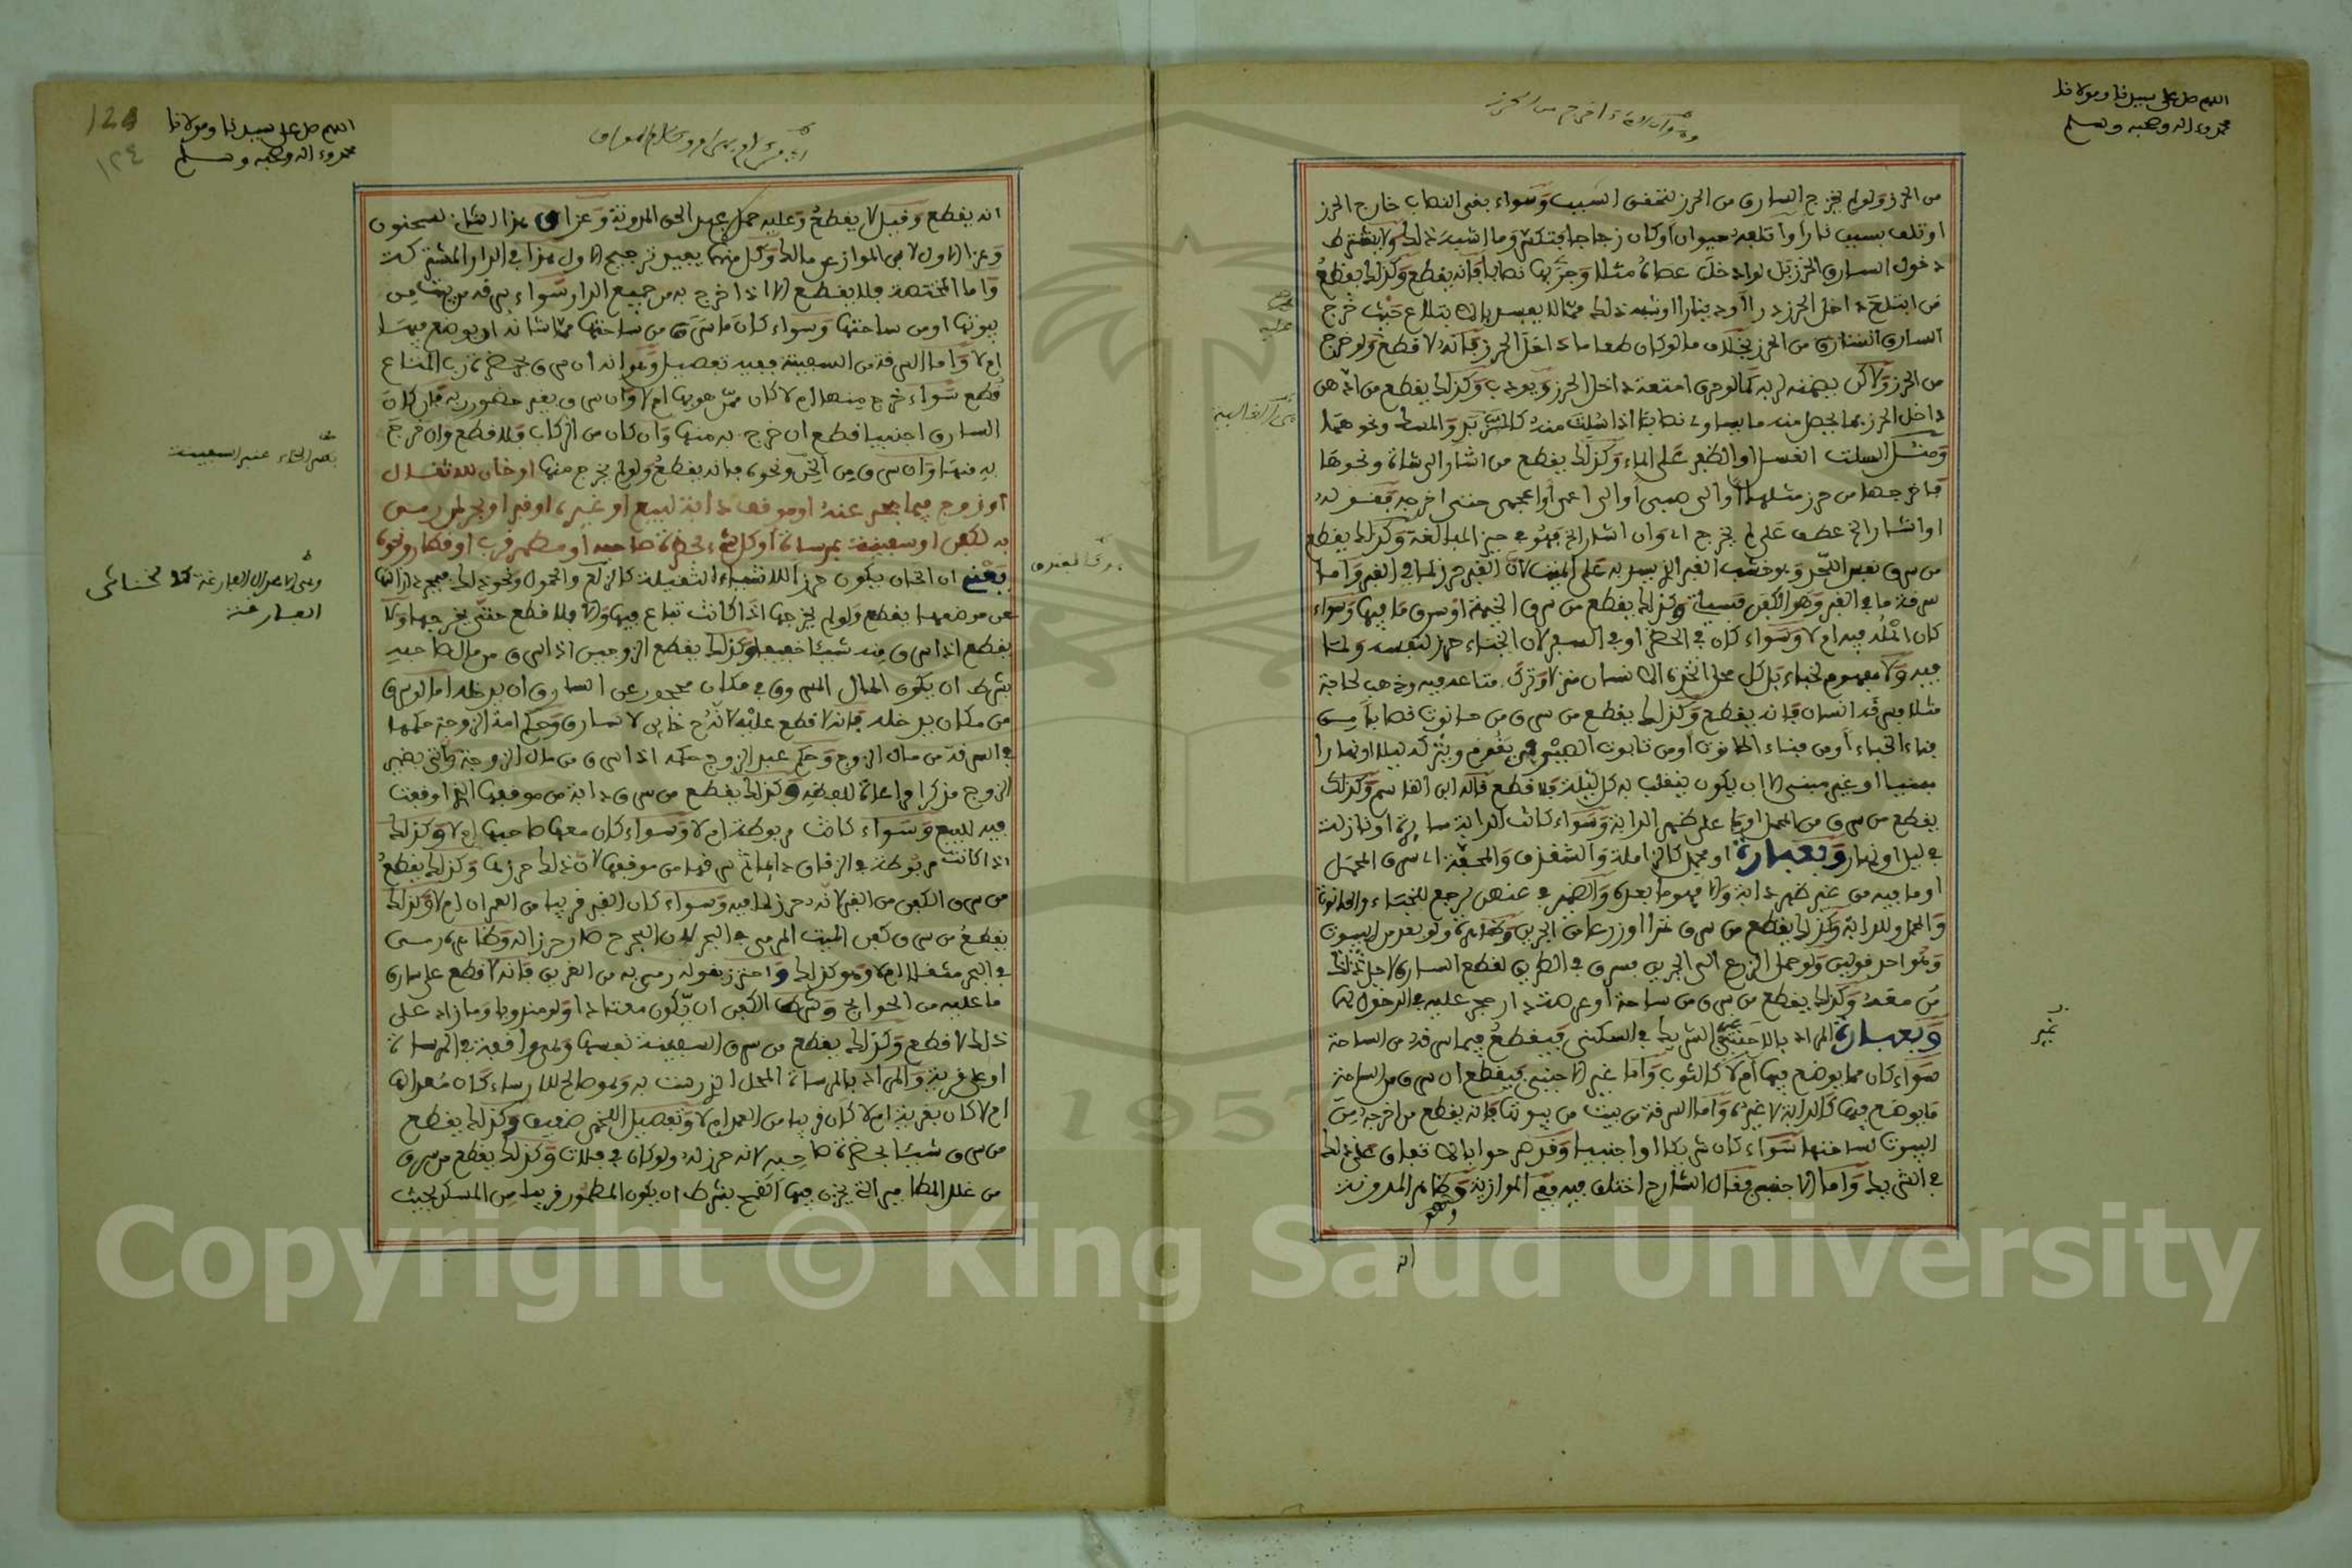 اللهم صل على سيدنا ومولانا
محمد وءاله وصحبه وسلم
من الحرز ولو لم يخرج السارق من الحرز لتحقق السبب وسواء بقى النصاب خارج الحرز
او تلف بسبب نار او اتلفه حيوان او كان زجاجا فتكسر وما اشبه ذلك ولا يشترط
دخول السارق الحرز بل لو ادخل عصاه مثلا وجر بها نصابا فانه يقطع وكذلك يقطع
من ابتلع داخل الحرز درا او دينارا او شبه ذلك مما لا يفسد بالابتلاع حيث خرج
السارق من الحرز بخلاف ما لو كان طعاما داخل الحرز فانه لا قطع ولو خرج
من الحرز ولاكن يضمنه لربه كما لو حرق امتعة داخل الحرز ويودب وكذلك يقطع من ادهن
داخل الحرز بما يحصل منه ما يساوي نصابا اذا سلت منه كالزبد والمسك ونحوهما
ومثل السلت الغسل او الطفو على الماء وكذلك يقطع من اشار الى شاة ونحوها
فاخرجها من حرز مثلها او الى صبي او الى اعمى او اعجمي حتى اخرجه
او اشار الخ عطف على لم يخرج اي وان اشار الخ فهو في حيز المبالغة وكذلك يقطع
من سرق نفس اللحد وهو خشب القبر الذي يسد به على الميت لان القبر حرز لما في القبر واما
سرقة ما في القبر وهو الكفن فسياتي وكذلك يقطع من سرق الخيمة او سرق ما فيها وسواء
كان اهله فيه ام لا وسواء كان في الحضر او في السفر لان الخباء حرز لنفسه ولما
فيه ولا مفهوم لخباء بل كل محل اتخذه الانسان منزلا وترك متاعه فيه وذهب لحاجة
مثلا فسرقه انسان فانه يقطع وكذلك يقطع من سرق من حانوت نصابا من
فناء الخباء او من فناء الحانوت او من تابوت الصيرفي يقوم ويتركه ليلا او نهارا
مبنيا او غير مبنى الا ان يكون ينقلب به كل ليلة فلا قطع قاله ابن القاسم وكذلك
يقطع من سرق من المحمل او ما على ظهر الدابة وسواء كانت الدابة سائرة او نازلة
في ليل او نهار وبعبارة او محمل كالزاملة والشقدف والمحفة اي سرق المحمل
او ما فيه من غير ظهر دابة والا فهو ما بعده والضمير في عنهن يرجع للخباء والحانوت
والمحمل وللدابة وكذلك يقطع من سرق تمرا او زرعا من الجرين ولو بعد من البيوت
وهو احد قولين ولو حمل الزرع الى الجرين فسرق في الطريق لقطع السارق لاجل
من معه وكذلك يقطع من سرق من ساحة او عرصة دار حجر عليه في الدخول لها
وبعبارة المراد بالاجنبي الشريك في السكنى فيقطع فيما سرقه من الساحة
سواء كان مما يوضع فيها ام لا كالثوب واما غير الاجنبي فيقطع ان سرق من الساحة
ما يوضع فيها كالدابة لا غيره واما السرقة من بيت من بيوتها فانه يقطع من اخرجه من
البيوت لساحتها سواء كان شريكا او اجنبيا وقد صرحوا بالاتفاق على ذلك
في الشريك واما الاجنبي فقال الشارح اختلف فيه ففي الموازية وظاهر المدونة
انه
128
١٢٤
اللهم صل على سيدنا ومولانا
محمد وءاله وصحبه وسلم
انه يقطع وقيل لا يقطع وعليه حمل عبد الحق المدونة وعزا ق هذا الثاني لسحنون
وعزا الاول لابن المواز عن مالك وكل منهما يفيد ترجيح الاول هذا في الدار المشتركة
واما المختصة فلا يقطع الا اذا خرج به من جميع الدار سواء سرقه من بيت من
بيوتها او من ساحتها وسواء كان ما سرق من ساحتها مما شانه ان يوضع فيها
ام لا واما السرقة من السفينة ففيه تفصيل وهو انه ان سرق بحضرة رب المتاع
قطع سواء خرج منها ام لا كان ممن هو بها ام لا وان سرق بغير حضور ربه فان كان
السارق اجنبيا قطع ان خرج به منها وان كان من الركاب فلا قطع وان خرج
به منها وان سرق من الخن ونحوه فانه يقطع ولو لم يخرج منها او خان للاثقال
او زوج فيما حجر عنه او موقف دابة لبيع او غيره او قبر او بحر لمن رمى
به لكفن او سفينة بمرساة او كل شيء بحضرة صاحبه او مطمر قرب او قطار ونحوه
يعني ان الخان يكون حرزا للاشياء الثقيلة كالزلع والحمول ونحو ذلك فمجرد ازالتها
عن موضعها يقطع ولو لم يخرجها اذا كانت تباع فيها والا فلا قطع حتى يخرجها ولا
يقطع اذا سرق منه شيئا خفيفا وكذلك يقطع الزوجين اذا سرق من مال صاحبه
بشرط ان يكون المال المسروق في مكان محجور عن السارق ان يدخله اما لو سرق
من مكان يدخله فانه لا قطع عليه لانه ح خاين لا سارق وحكم امة الزوجة حكمها
في السرقة من مال الزوج وحكم عبد الزوج حكمه اذا سرق من مال الزوجة واتى بضمير
الزوج مذكرا مراعاة للفظه وكذلك يقطع من سرق دابة من موقفها الذي اوقفت
فيه للبيع وسواء كانت مربوطة ام لا وسواء كان معها صاحبها ام لا وكذلك
اذا كانت مربوطة في الزقاق دائما ثم سرقها من موقفها لان ذلك حرزها وكذلك يقطع
من سرق الكفن من القبر لانه حرز لما فيه وسواء كان القبر قريبا من العمران ام لا وكذلك
يقطع من سرق كفن الميت المرمى في البحر لان البحر ح صار حرزا له وظاهره رمى
في البحر مثقلا ام لا وهو كذلك واحترز بقوله رمى به من الغريق فانه لا قطع على سارق
ما عليه من الحوايج وشرط الكفن ان يكون معتادا ولو مندوبا وما زاد على
ذلك لا قطع وكذلك يقطع من سرق السفينة نفسها وهي واقفة في المرساة
او على قرية والمراد بالمرساة المحل الذي رست به وهو صالح للارساء كان معدا لها
ام لا كان بقرية ام لا كان قريبا من العمران ام لا وتفصيل اللخمي ضعيف وكذلك يقطع
من سرق شيئا بحضرة صاحبه لانه حرز له ولو كان في فلات وكذلك يقطع من سرق
من غلل المطامير التي يخزن فيها القمح بشرط ان يكون المطمور قريبا من المسكن بحيث